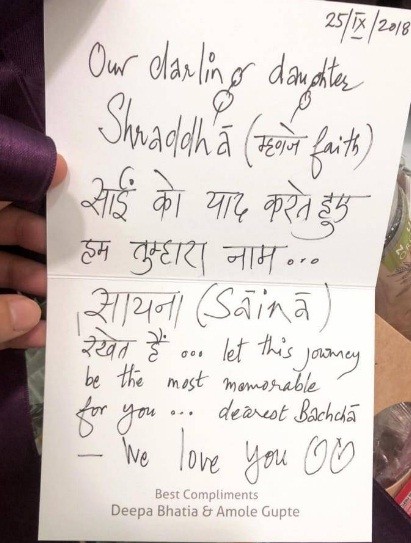 25/IX/2018
Our darling daughter
Shraddhā (म्हणजे faith)
साईं को याद करते हुए
हम तुम्हारा नाम...
सायना (Sāinā)
रखते हैं ... let this journey
be the most memorable
for you ... dearest Bachchā
— We love you
Best Compliments
Deepa Bhatia & Amole Gupte